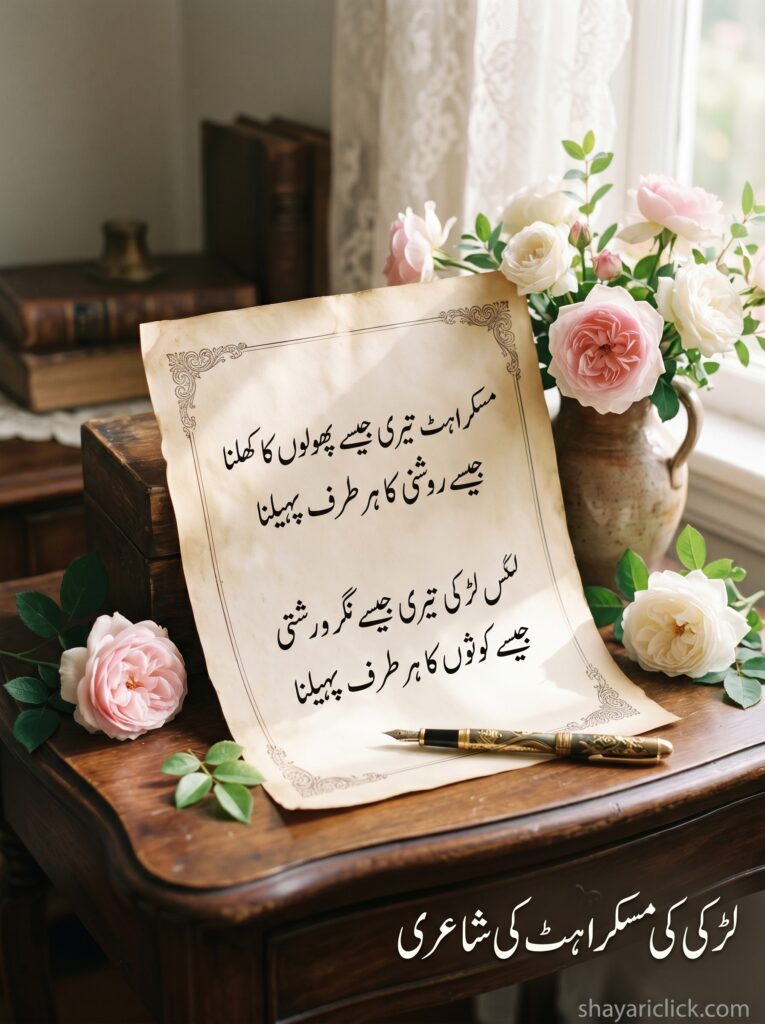 مسکراہٹ تیری جیسے پھولوں کا کھلنا
جیسے روشنی کا ہر طرف پھیلنا
لڑکی تیری جیسے
جیسے کا ہر طرف پھیلنا
لڑکی کی مسکراہٹ کی شاعری
shayariclick.com